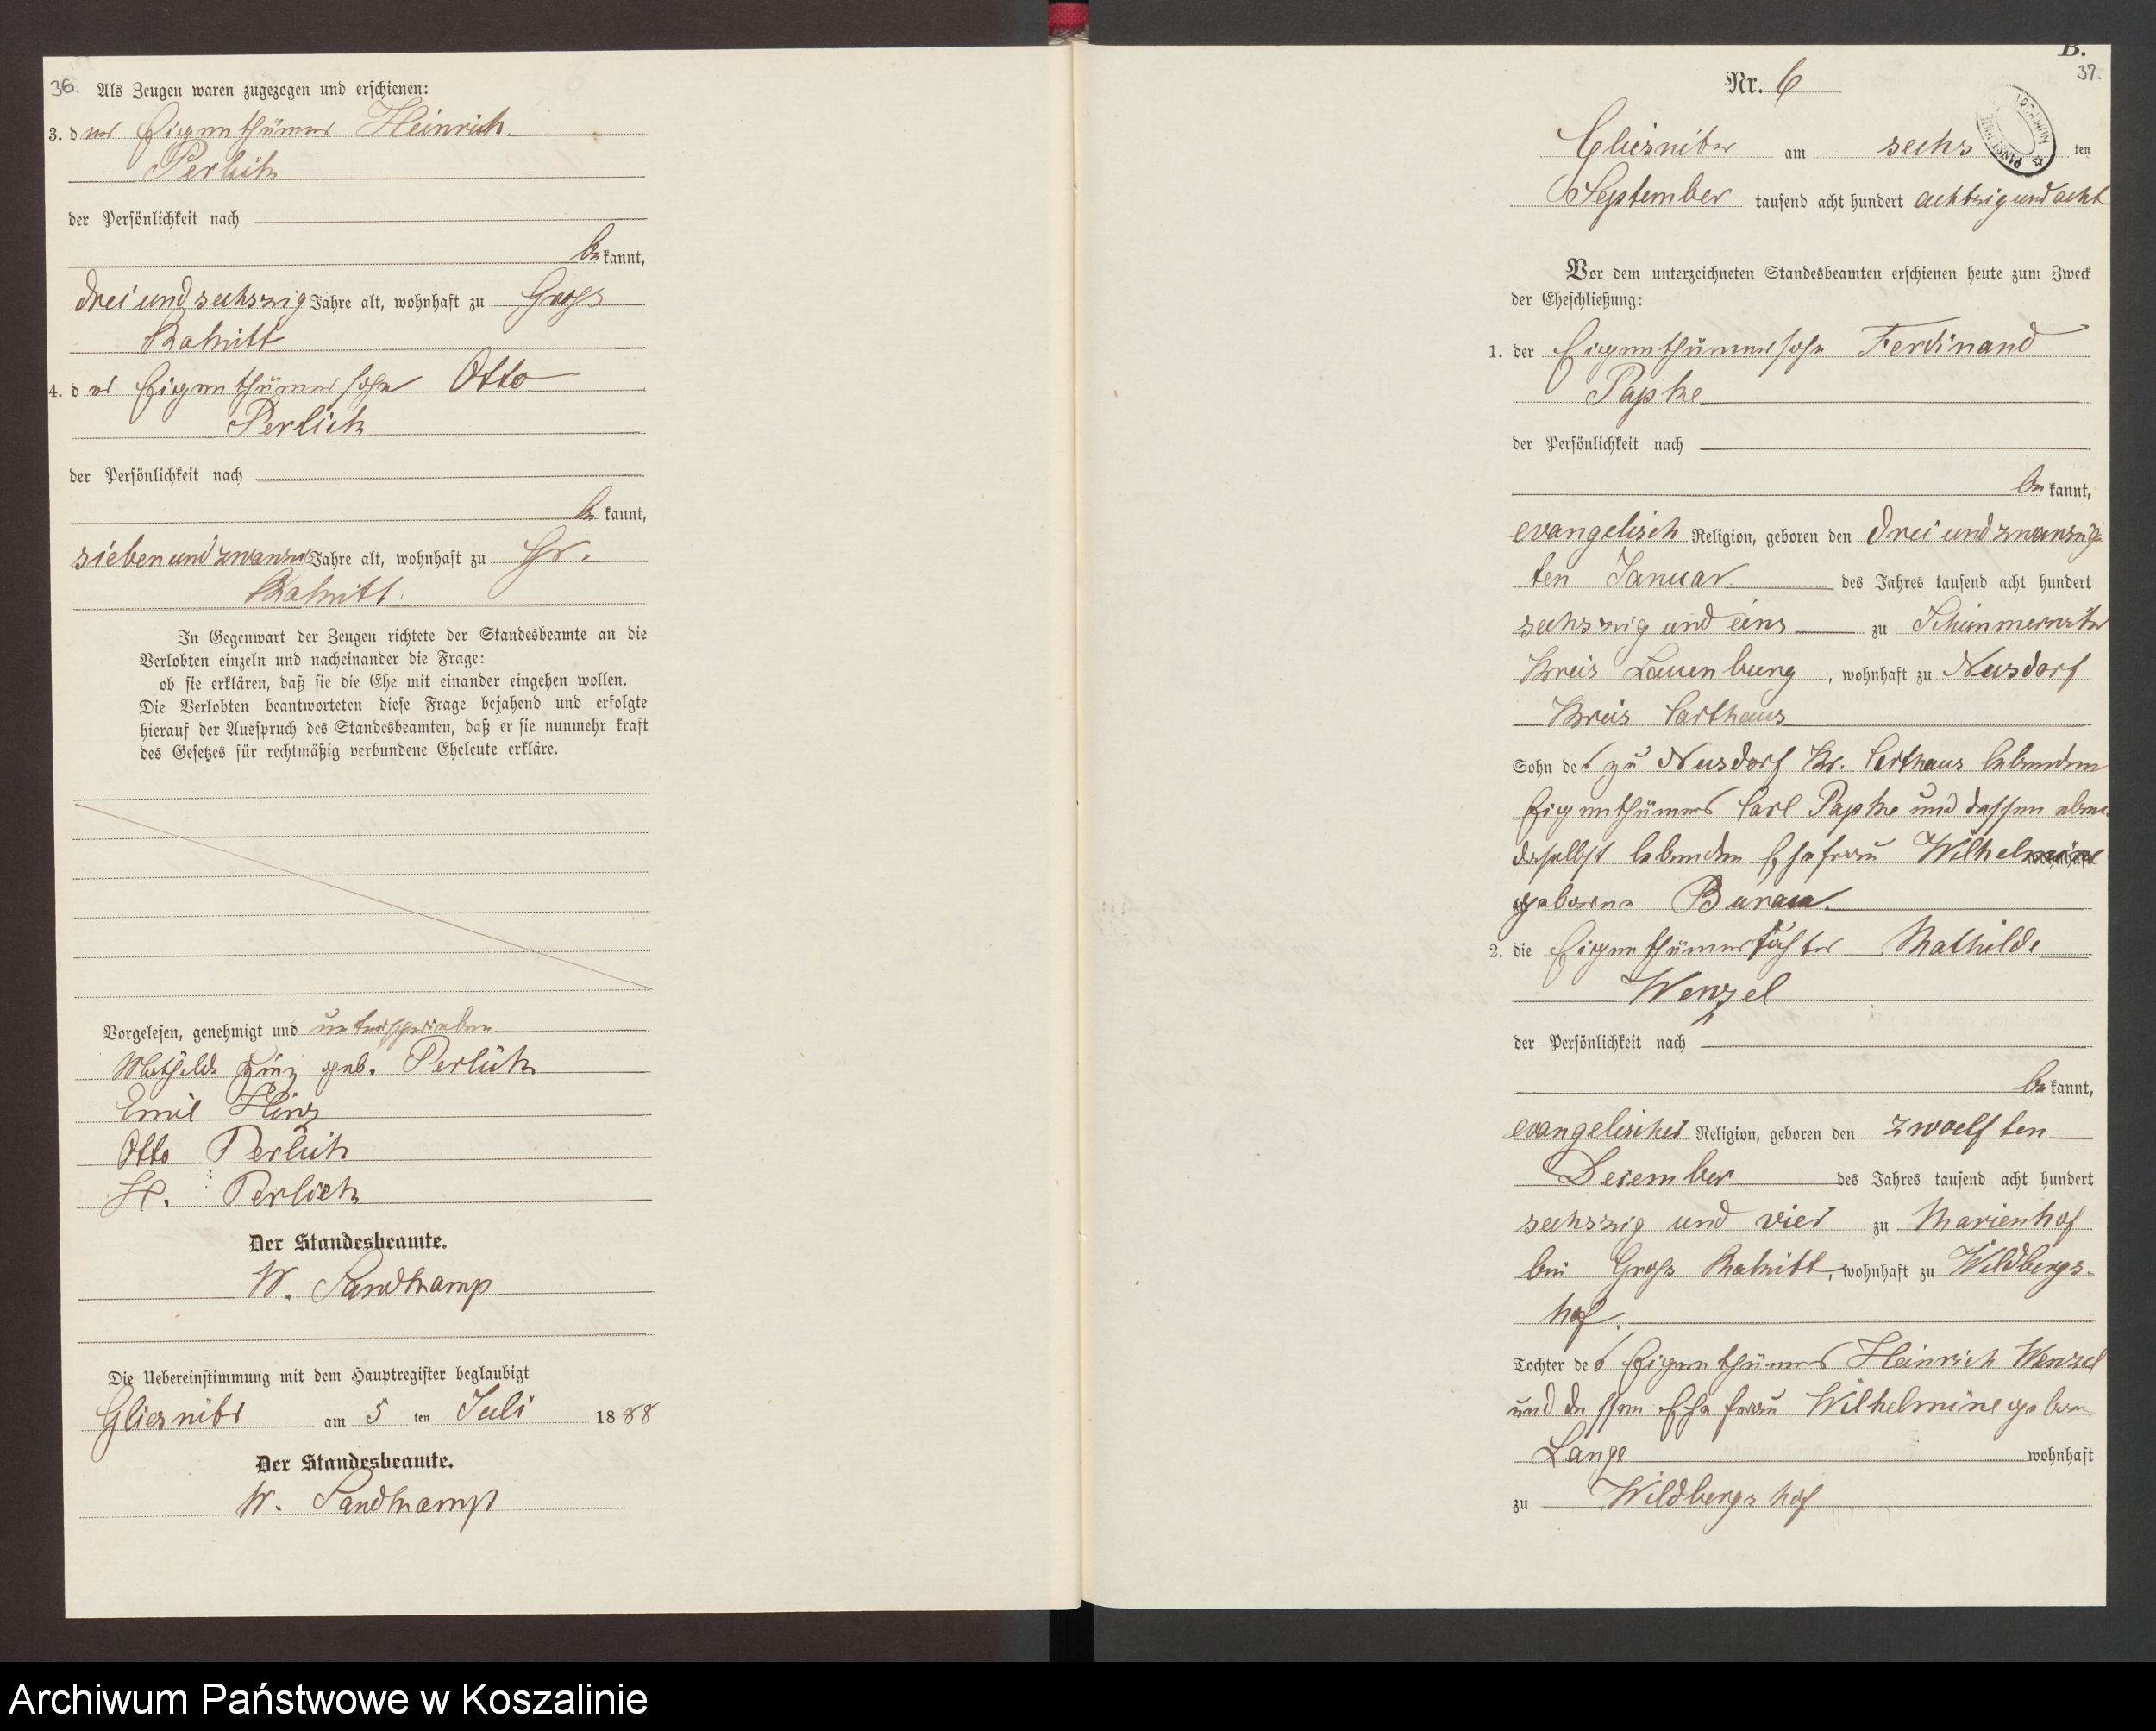 36. Als Zeugen waren zugezogen und erschienen:
3. der Eigenthümer Heinrich
Perlich
der Persönlichkeit nach
be kannt,
drei und sechszig Jahre alt, wohnhaft zu Gross
Rakitt
4. der Eigenthümersohn Otto
Perlich
der Persönlichkeit nach
be kannt,
sieben und zwanzig Jahre alt, wohnhaft zu Gr.
Rakitt.
In Gegenwart der Zeugen richtete der Standesbeamte an die
Verlobten einzeln und nacheinander die Frage:
ob sie erklären, daß sie die Ehe mit einander eingehen wollen.
Die Verlobten beantworteten diese Frage bejahend und erfolgte
hierauf der Ausspruch des Standesbeamten, daß er sie nunmehr kraft
des Gesetzes für rechtmäßig verbundene Eheleute erkläre.
Vorgelesen, genehmigt und unterschrieben
Mathilde Hinz geb. Perlich
Emil Hinz
Otto Perlich
H. Perlich
Der Standesbeamte.
W. Sandkamp
Die Uebereinstimmung mit dem Hauptregister beglaubigt
Gliesnitz am 5 ten Juli 1888
Der Standesbeamte.
W. Sandkamp
B.
37.
Nr. 6
Gliesnitz am sechs ten
September tausend acht hundert achtzig und acht
Vor dem unterzeichneten Standesbeamten erschienen heute zum Zweck
der Eheschließung:
1. der Eigenthümersohn Ferdinand
Papke
der Persönlichkeit nach
be kannt,
evangelisch Religion, geboren den drei und zwanzig
ten Januar des Jahres tausend acht hundert
sechszig und eins zu Schimmerwitz
Kreis Lauenburg, wohnhaft zu Neusdorf
Kreis Carthaus
Sohn des zu Neusdorf Kr. Carthaus lebenden
Eigenthümers Carl Papke und dessen eben
daselbst lebenden Ehefrau Wilhelmine
geborene Burau.
2. die Eigenthümertochter Mathilde
Wenzel
der Persönlichkeit nach
be kannt,
evangelischer Religion, geboren den zwoelf ten
Dezember des Jahres tausend acht hundert
sechszig und vier zu Marienhof
bei Gross Rakitt, wohnhaft zu Wildbergs-
hof.
Tochter des Eigenthümers Heinrich Wenzel
und dessen Ehefrau Wilhelmine geboren
Lange wohnhaft
zu Wildbergshof
Archiwum Państwowe w Koszalinie